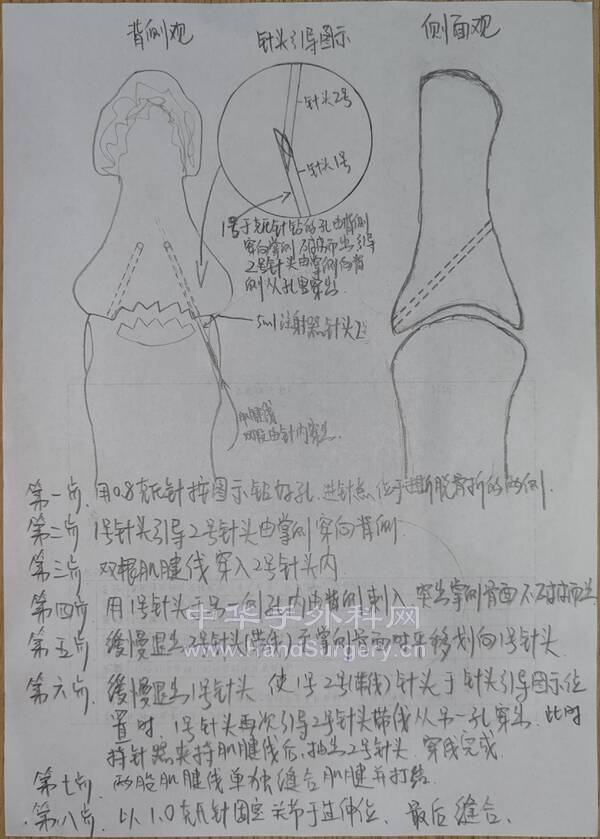 背侧观
针头引导图示
侧面观
针头2号
针头1号
1号于克氏针钻的孔由背侧
穿向掌侧 不穿出 引导
2号针头由掌侧向背
侧从孔里穿出
5ml注射器针头2
肌腱线
双股由针内穿出
第一步 用0.8克氏针按图示钻好孔.进针点位于撕脱骨折的两侧.
第二步 1号针头引导2号针头由掌侧穿向背侧.
第三步 双根肌腱线穿入2号针头内
第四步 用1号针头于另一侧孔内由背侧刺入 突出掌侧骨面
第五步 缓慢退出2号针头(带线)于掌侧骨面 移划向1号针头
第六步 缓慢退出1号针头 使1号2号(带线)针头于针头引导图示位
置时 1号针头再次引导2号针头带线从另一孔穿出. 此时
持针器夹持肌腱线后 抽出2号针头 穿线完成.
第七步 两股肌腱线单独缝合肌腱并打结.
第八步 以1.0克氏针固定关节于过伸位. 最后缝合.
中华手外科网
www.HandSurgery.cn